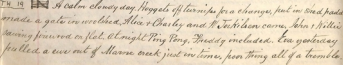 TH 19 A calm cloudy day. Hoggets off turnips for a change, put in end padd
made a gate in woolshed, Alex & Charley and W. Jenkinson came, John & Willie
carring firewood on flat. At night Ping Pong. Freddy included. Eva yesterday
pulled a ewe out of Manse creek just in time, poor thing all of a tremble